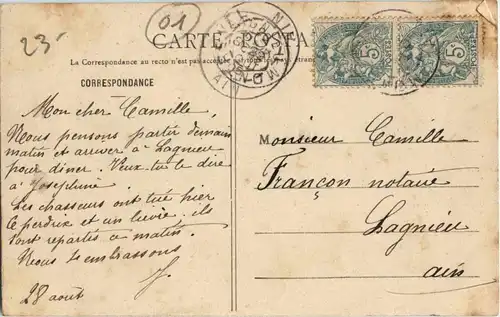 23
01
CARTE
La Correspondance au recto n'est pas acceptée
CORRESPONDANCE
Mon cher Camille
Nous pensons partir demain
matin et arriver à Lagnieu
pour diner. Veux-tu le dire
à Josephine.
Les chasseurs ont tué hier
1e perdrix et un lièvre. ils
sont repartis ce matin.
Nous t'embrassons
J.
28 août
AIN
5c
POSTES
5c
POSTES
Monsieur Camille
Françon notaire
Lagnieu
ain